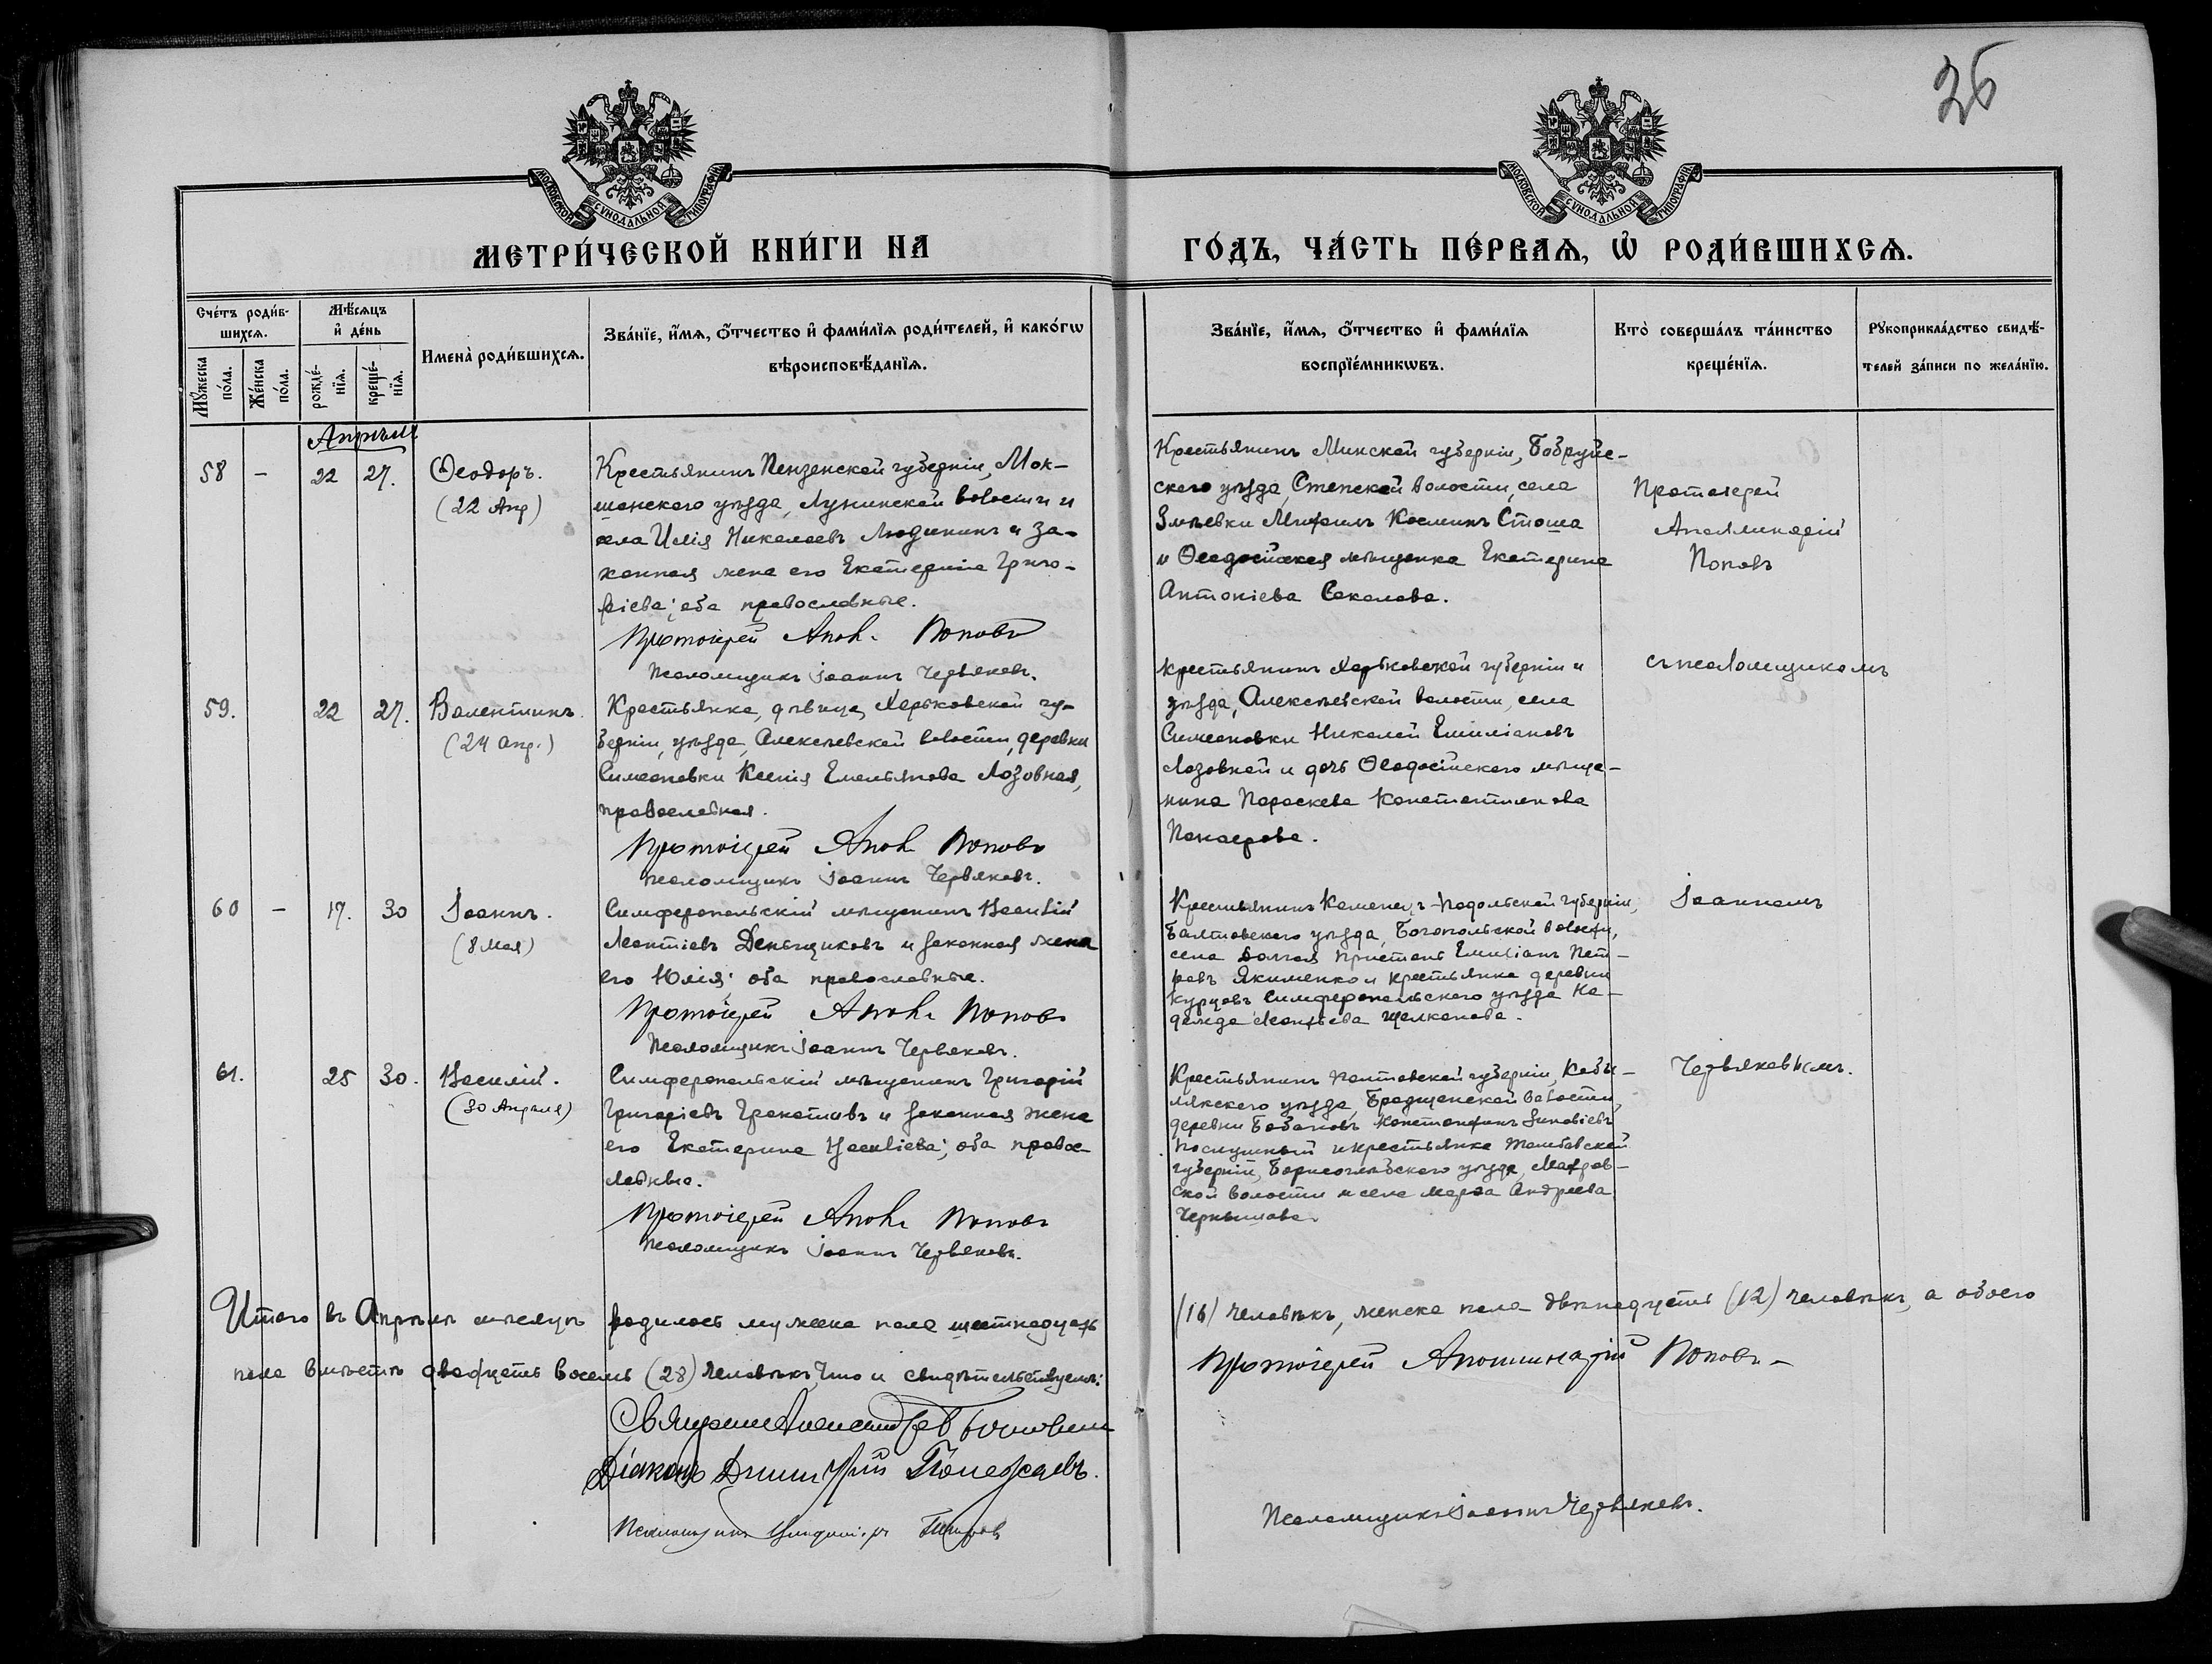 26
МОСКОВСКОЙ СѴНОДАЛЬНОЙ ТИПОГРАФІИ
МОСКОВСКОЙ СѴНОДАЛЬНОЙ ТИПОГРАФІИ
МЕТРИ́ЧЕСКОЙ КНИ́ГИ НА
ГО́ДЪ, ЧА́СТЬ ПЕ́РВАѦ, Ѽ РОДИ́ВШИХСѦ.
Сче́тъ роди́в-
шихсѧ.
Мꙋ́жеска
по́ла.
Же́нска
по́ла.
Мѣ́сѧцъ
и҆ де́нь
рожде́-
нїѧ.
креще́-
нїѧ.
Имена̀ роди́вшихсѧ.
Зва́нїе, и҆́мѧ, ѻ҆́тчество и҆ фами́лїѧ роди́телей, и҆ како́гѡ
вѣроисповѣ́данїѧ.
Зва́нїе, и҆́мѧ, ѻ҆́тчество и҆ фами́лїѧ
воспрїе́мникѡвъ.
Кто̀ соверша́лъ та́инство
креще́нїѧ.
Рꙋкоприкла́дство свидѣ́-
телей за́писи по жела́нїю.
Апрѣль
58 - 22 27. Ѳеодоръ.
(22 Апр)
Крестьянинъ Пензенской губерніи, Мок-
шанскаго уѣзда, Лунинской волости и
села Илія Николаевъ Людининъ и за-
конная жена его Екатерина Григо-
ріева; оба православные.
Протоіерей Апол. Поповъ
Псаломщикъ Іоаннъ Червяковъ.
Крестьянинъ Минской губерніи, Бобруй-
скаго уѣзда, Степской волости, села
Змѣевки Михаилъ Косминъ Стоша
и Ѳеодосійская мѣщанка Екатерина
Антоніева Соколова.
Протоіерей
Аполлинарій
Поповъ
59. 22 27. Валентинъ.
(24 апр.)
Крестьянка, дѣвица, Харьковской гу-
берніи, уѣзда, Алексѣевской волости, деревни
Симеоновки Ксенія Емельянова Лозовная,
православная.
Протоіерей Апол. Поповъ
псаломщикъ Іоаннъ Червяковъ.
Крестьянинъ Харьковской губерніи и
уѣзда, Алексѣевской волости, села
Симеоновки Николай Емиліановъ
Лозовной и дочь Ѳеодосійскаго мѣща-
нина Параскева Константинова
съ псаломщикомъ
60 - 17. 30 Іоаннъ.
(8 Мая)
Симферопольскій мѣщанинъ Василій
Леонтіевъ Деньщиковъ и законная жена
его Юлія; оба православные.
Протоіерей Апол. Поповъ
Псаломщикъ Іоаннъ Червяковъ.
Крестьянинъ Каменецъ-Подольской губерніи,
Балтовскаго уѣзда, Богопольской волости,
села Долгая Пристань Емиліанъ Пет-
ровъ Якименко и крестьянка деревни
Курцовъ Симферопольскаго уѣзда На-
дежда Леонтьева Щелканова.
Іоанномъ
61. 25 30. Василій.
(30 Апрѣля)
Симферопольскій мѣщанинъ Григорій
Григоріевъ Гранатовъ и законная жена
его Екатерина Василіева; оба правос-
лавные.
Протоіерей Апол. Поповъ
Псаломщикъ Іоаннъ Червяковъ.
Крестьянинъ Полтавской губерніи, Кобы-
лякскаго уѣзда, Бродщанской волости,
деревни Бабановъ Константинъ Зиновіевъ
Послушный и крестьянка Тамбовской
губерніи, Борисоглѣбскаго уѣзда, Махров-
ской волости и села Марѳа Андреева
Чернышова.
Червяковымъ.
Итого въ Апрѣлѣ мѣсяцѣ родилось мужска пола шестнадцать (16) человѣкъ, женска пола двѣнадцать (12) человѣкъ, а обоего
пола вмѣстѣ двадцать восемь (28) человѣкъ, что и свидѣтельствуемъ:
Протоіерей Аполлинарій Поповъ
Священникъ Александръ
Діаконъ Димитрій Полежаевъ.
Псаломщикъ
Псаломщикъ Іоаннъ Червяковъ.